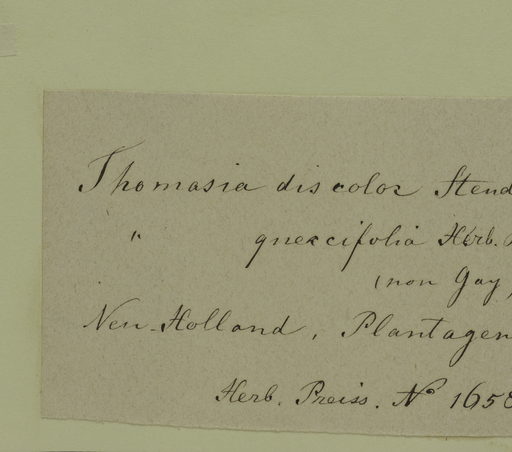 Thomasia discolor Steud
" quercifolia Herb.
(non Gay
Neu-Holland, Plantagen
Herb. Preiss. No 1658